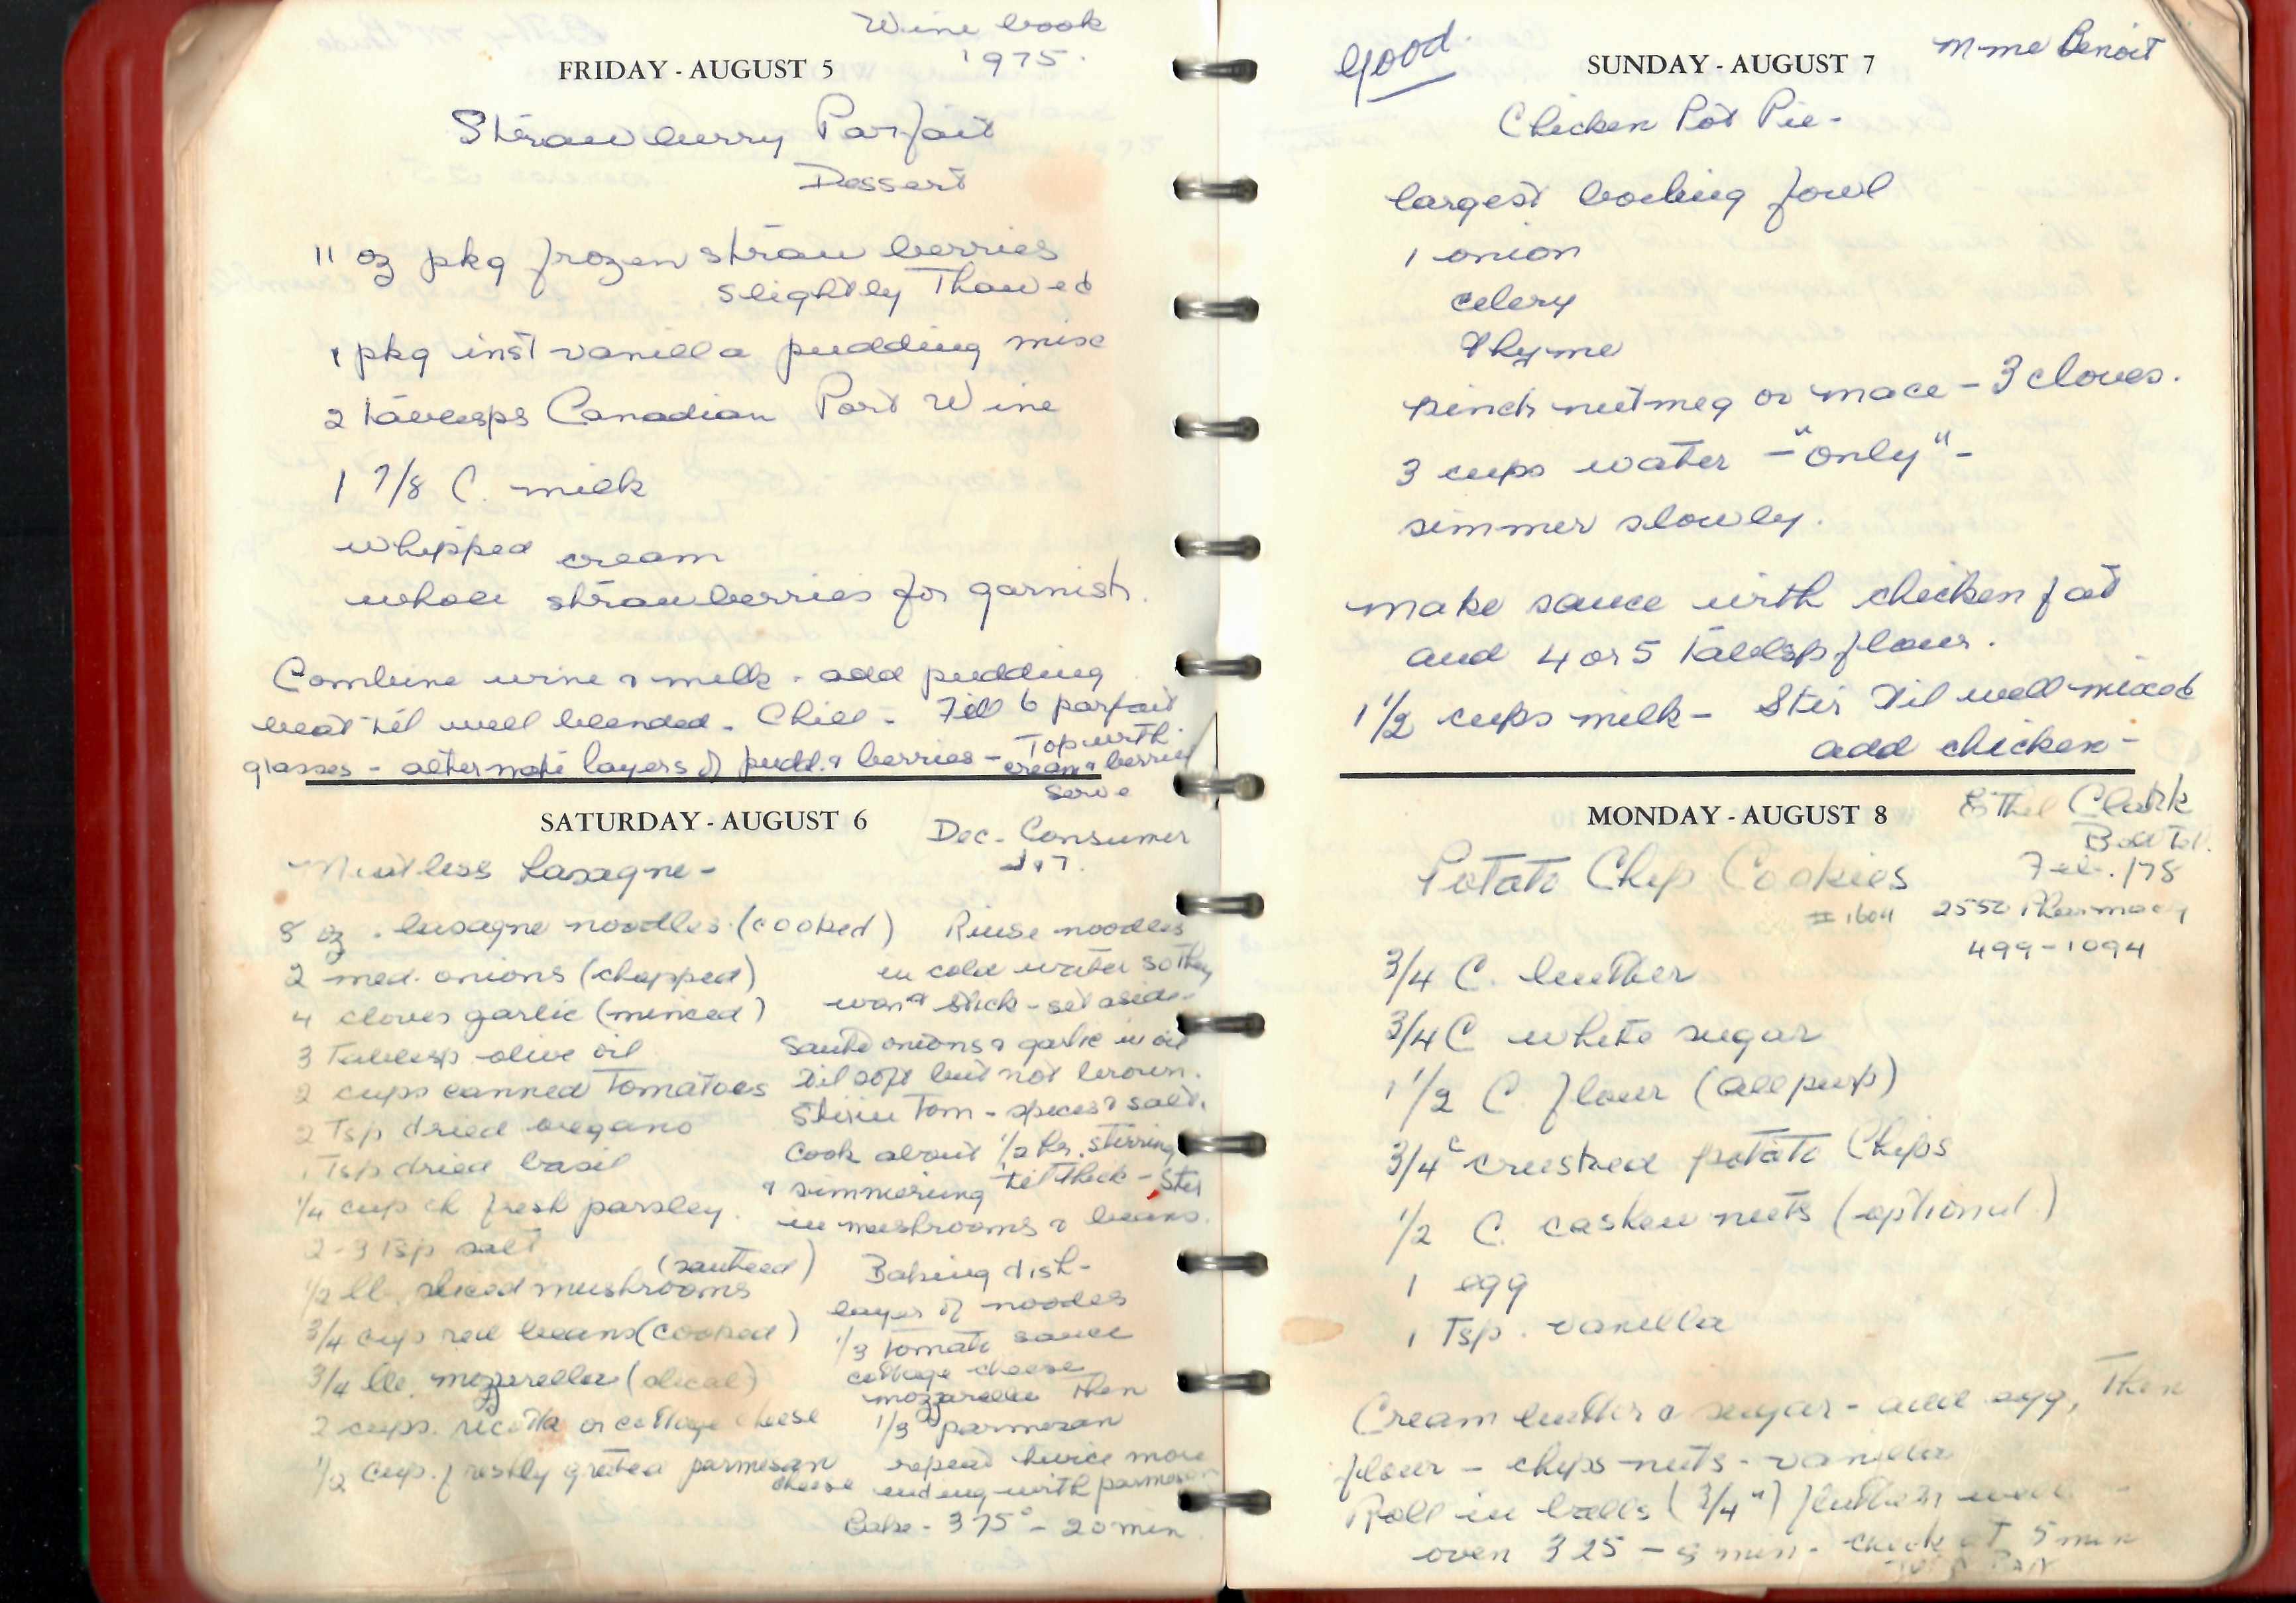 Wine book
1975.
FRIDAY - AUGUST 5
Strawberry Parfait
Dessert
11 oz pkg frozen strawberries
slightly Thawed
1 pkg inst vanilla pudding mix
2 tablesps Canadian Port Wine
1 7/8 C. milk
whipped cream
whole strawberries for garnish.
Combine wine & milk - add pudding
beat til well blended - Chill - Fill 6 parfait
glasses - alternate layers of pudd. & berries - Top with
cream & berries
serve
SATURDAY - AUGUST 6
Dec - Consumer
Meatless Lasagne -
8 oz. lasagne noodles (cooked)
2 med. onions (chopped)
4 cloves garlic (minced)
3 Tablesp olive oil
2 cups canned Tomatoes
2 Tsp dried oregano
1 Tsp dried basil
1/4 cup ch. fresh parsley.
2-3 Tsp salt
(sauteed)
1/2 lb. sliced mushrooms
3/4 cup red beans (cooked)
3/4 lb. mozzerella (sliced)
2 cups. ricotta or cottage cheese
1/2 cup. freshly grated parmesan
cheese
Rinse noodles
in cold water so they
won't stick - set aside -
Sauté onions & garlic in oil
til soft but not brown.
Stir in Tom - spices & salt.
Cook about 1/2 hr. stirring
& simmering til thick - Stir
in mushrooms & beans.
Baking dish -
layer of noodles
1/3 Tomato sauce
cottage cheese
mozzarella then
1/3 parmesan
repeat twice more
ending with parmesan
Bake - 375° - 20 min.
Good.
SUNDAY - AUGUST 7
Mme Benoit
Chicken Pot Pie -
largest boiling fowl
1 onion
celery
Thyme
pinch nutmeg or mace - 3 cloves.
3 cups water - "only" -
simmer slowly.
make sauce with chicken fat
and 4 or 5 tablesp flour.
1 1/2 cups milk - Stir Til well mixed
add chicken -
MONDAY - AUGUST 8
Ethel Clark
Bell Tel.
Feb. /78
Potato Chip Cookies
#1604 2550 Pharmacy
499-1094
3/4 C. butter
3/4 C white sugar
1 1/2 C. flour (all purp)
3/4 c crushed potato Chips
1/2 C. cashew nuts (optional)
1 egg
1 Tsp. vanilla
Cream butter & sugar - add egg, Then
flour - chips - nuts - vanilla
Roll in balls (3/4") flatten well -
oven 325 - 8 min. - check at 5 min